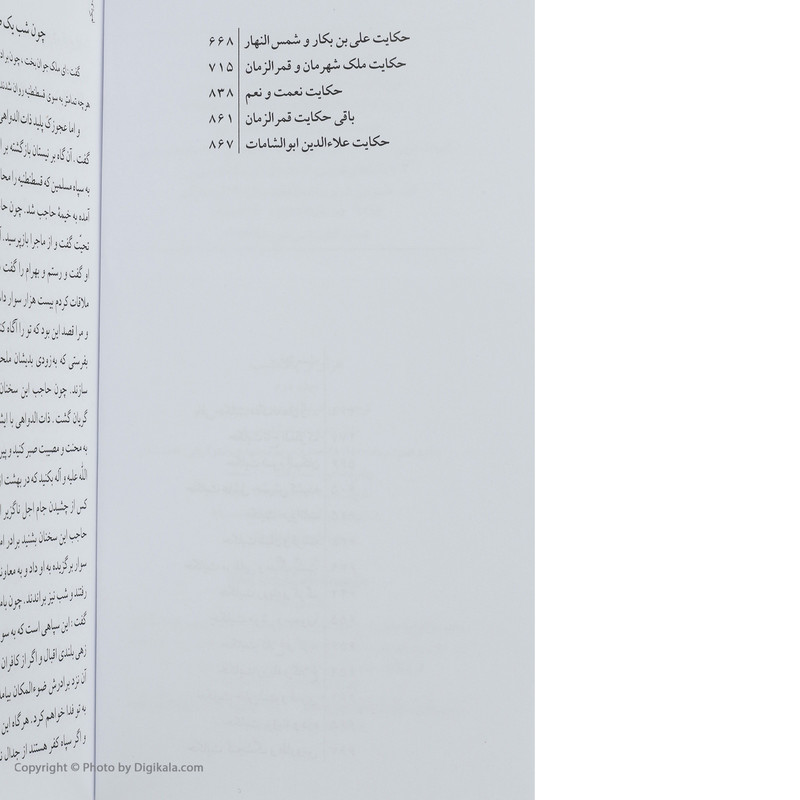 حکایت علی بن بکار و شمس النهار ۶۶۸
حکایت ملک شهرمان و قمرالزمان ۷۱۵
حکایت نعمت و نعم ۸۳۸
باقی حکایت قمرالزمان ۸۶۱
حکایت علاءالدین ابوالشامات ۸۶۷
چون شب یک
گفت: ای ملک جوان‌بخت، چون برادر
هرچه تمامتر به سوی قسطنطنیه روان شدند
و اما عجوزک پلید ذات الدواهی
گفت. آن گاه بر نیستان بازگشته بر
به سپاه مسلمین که قسطنطنیه را
آمده به خیمهٔ حاجب شد. چون
تحیّت گفت و از ماجرا بازپرسید.
او گفت و رستم و بهرام را گفت
ملاقات کردم بیست هزار سوار
و مرا قصد این بود که تو را آگاه
بفرستی که به‌زودی بدیشان
سازند. چون حاجب این سخنان
گریان گشت. ذات‌الدواهی با
به محنت و مصیبت صبر کنید و
الله علیه و آله بکنید که در بهشت
کس از چشیدن جام اجل ناگزیر
حاجب این سخنان بشنید برادر
سوار برگزیده به او داد و به
رفتند و شب نیز براندند. چون
گفت: این سپاهی است که به
زهی بلندی اقبال و اگر از کافران
آن نزد برادرش ضوءالمکان
به تو فدا خواهم کرد. هرگاه این
و اگر سپاه کفر هستند از جدال
Copyright © Photo by Digikala.com